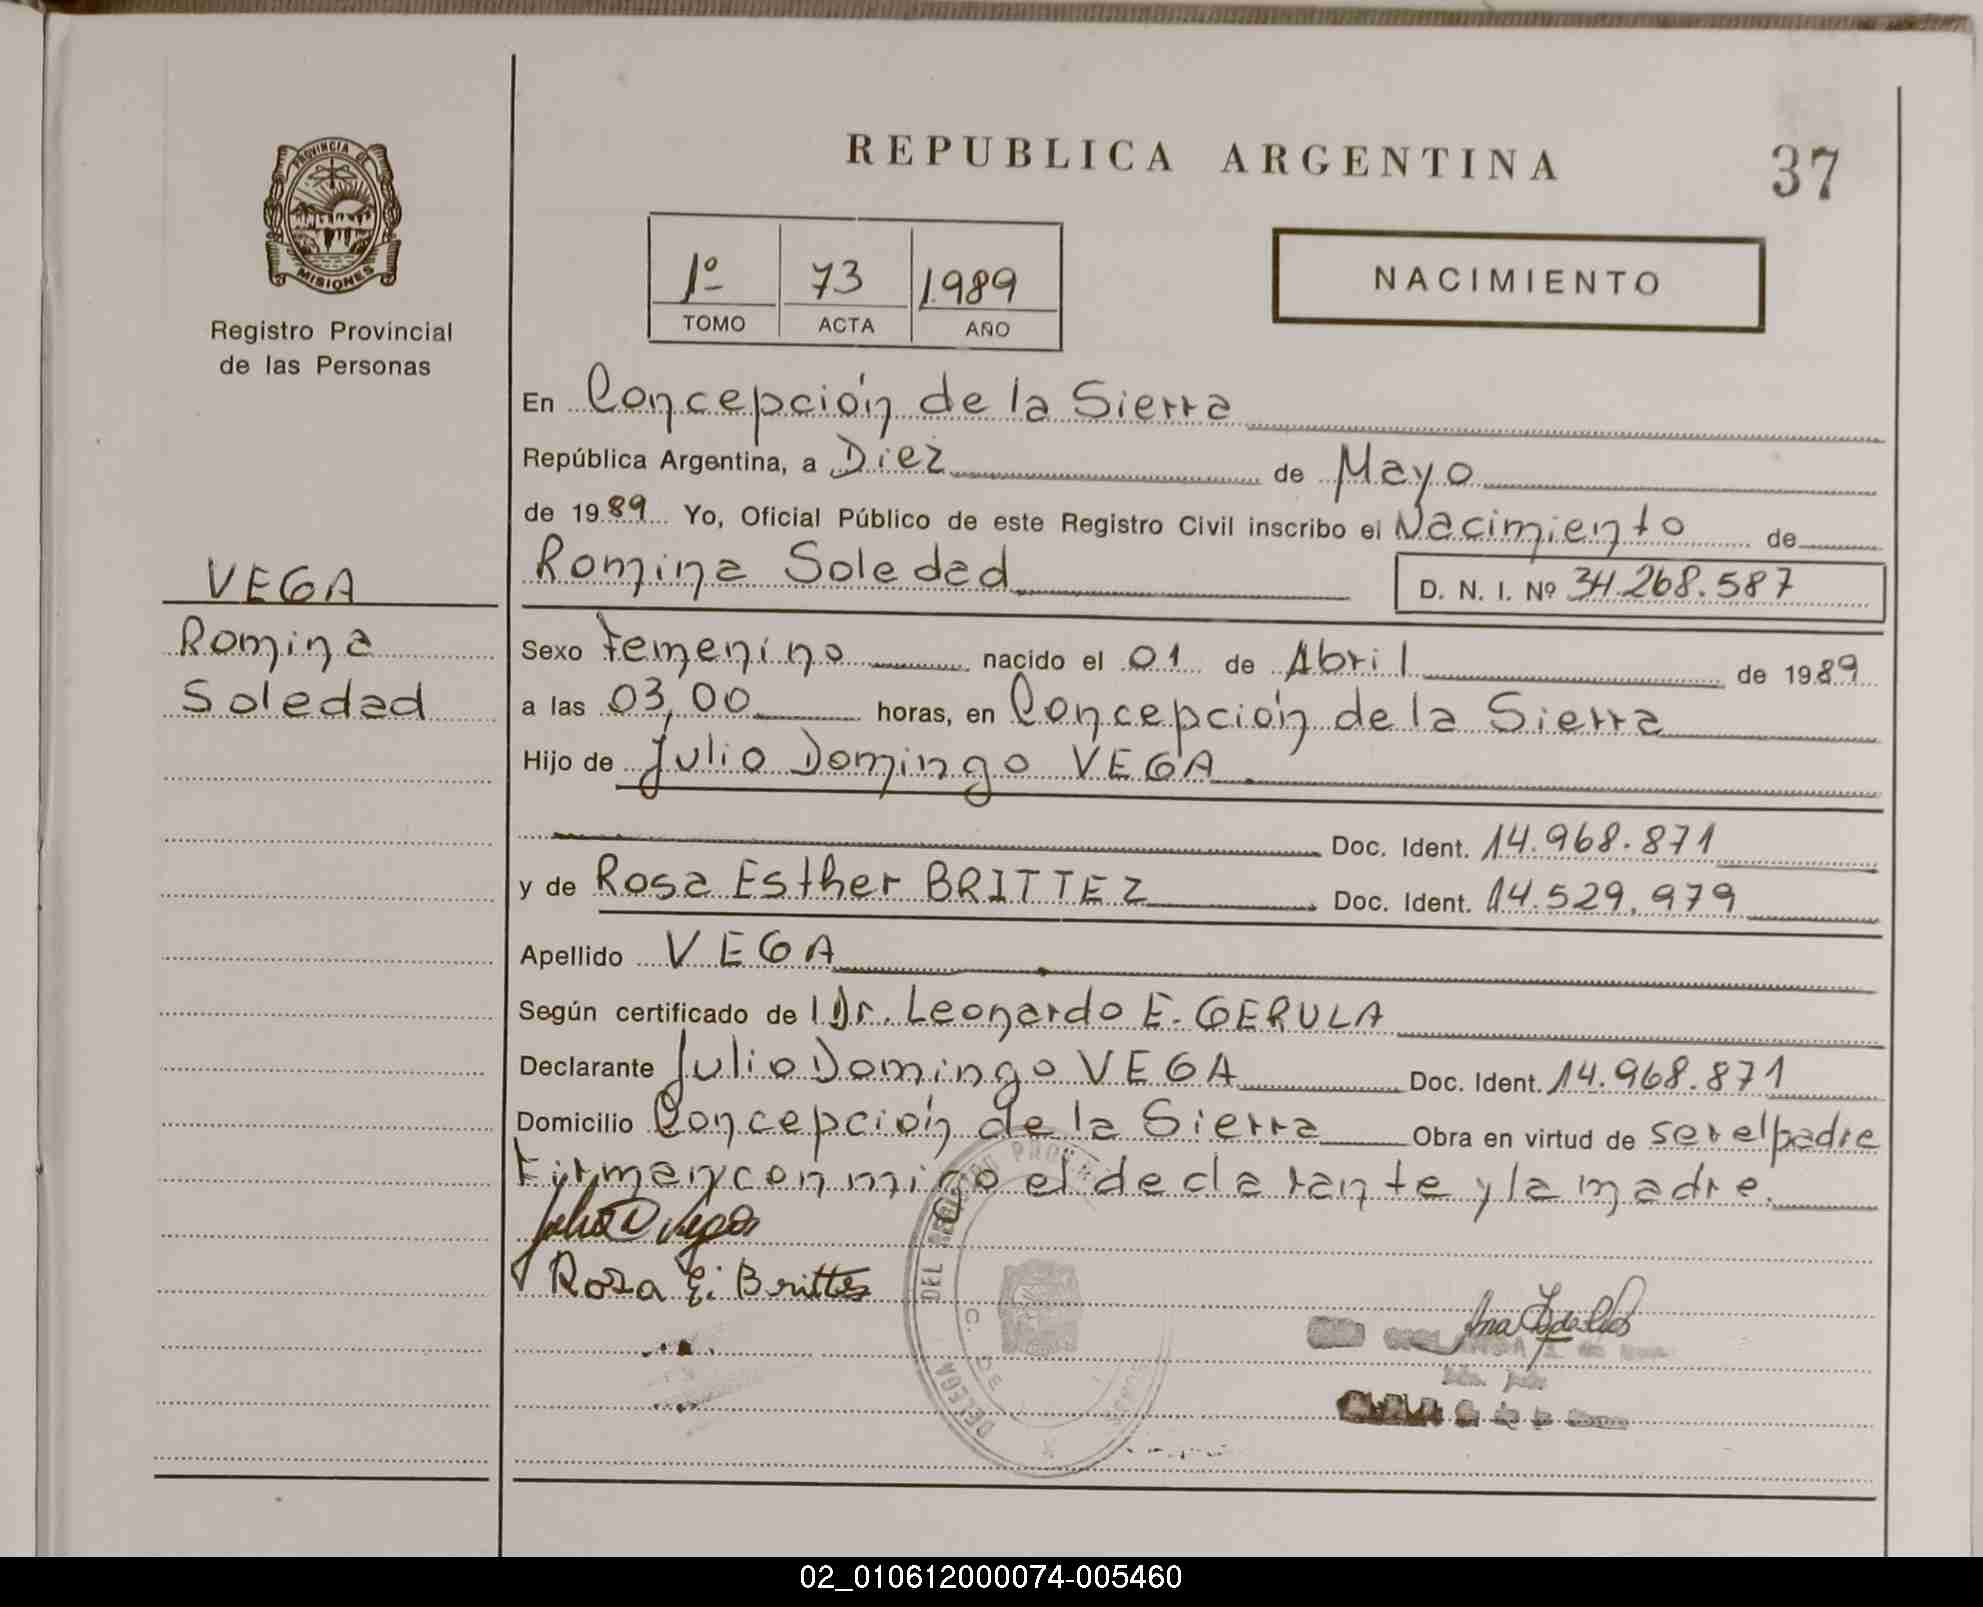 REPUBLICA ARGENTINA
37
PROVINCIA DE
MISIONES
Registro Provincial
de las Personas
1º 73 1989
TOMO ACTA AÑO
NACIMIENTO
En Concepción de la Sierra
República Argentina, a Diez de Mayo
de 1989 Yo, Oficial Público de este Registro Civil inscribo el Nacimiento de
Romina Soledad
D. N. I. Nº 34.268.587
VEGA
Romina
Soledad
Sexo Femenino nacido el 01 de Abril de 1989
a las 03,00 horas, en Concepción de la Sierra
Hijo de Julio Domingo VEGA
Doc. Ident. 14.968.871
y de Rosa Esther BRITTEZ Doc. Ident. 14.529.979
Apellido VEGA
Según certificado de Dr. Leonardo E. GERULA
Declarante Julio Domingo VEGA Doc. Ident. 14.968.871
Domicilio Concepción de la Sierra Obra en virtud de ser el padre
Firman conmigo el declarante y la madre.
Julio D Vega
Rosa E. Brittes
DEL REGISTRO
DELEGA
C. DE
02_010612000074-005460